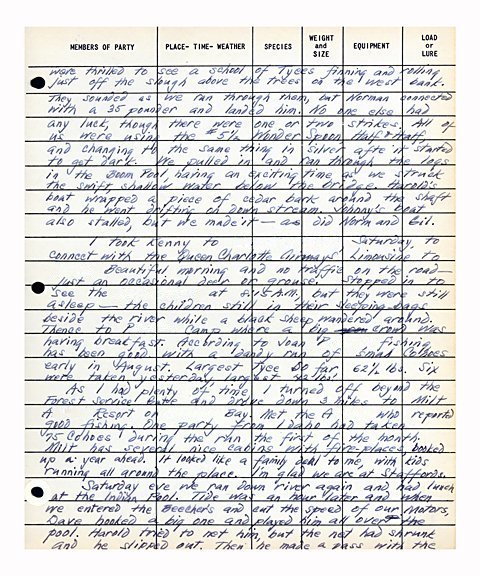 MEMBERS OF PARTY PLACE- TIME- WEATHER SPECIES WEIGHT and SIZE EQUIPMENT LOAD or LURE
were thrilled to see a school of Tyees finning and rolling
just off the slough above the trees on the west bank.
They sounded as we ran through them, but Norman connected
with a 35 pounder and landed him. No one else had
any luck, though there were one or two strikes. All of
us were using the #5½ Wonder Spoon Half & Half
and changing to the same thing in silver after it started
to get dark. We pulled in and ran through the logs
in the Boom Pool, having an exciting time as we struck
the swift, shallow water below the bridge. Harold's
boat wrapped a piece of cedar bark around the shaft
and he went drifting on down stream. Johnny's boat
also stalled, but we made it - as did Norm and Gil.
I took Kenny to Saturday, to
connect with the Queen Charlotte Airways' Limousine to
Beautiful morning and no traffic on the road-
just an occasional deer or grouse. Stopped in to
see the at 8:15 A.M. but they were still
asleep - the children still in their sleeping bags
beside the river while a black sheep wandered around.
Thence to P Camp where a big crowd was
having breakfast. According to Joan P fishing
has been good with a dandy run of small Cohoes
early in August. Largest Tyee so far, 62½ lbs. Six
were taken yesterday, largest
As I had plenty of time I turned off beyond the
Forest Service Gate and drove down 3 miles to Milt
A Resort on Bay. Met the A who reported
good fishing. One party from Idaho had taken
75 Cohoes during the run the first of the month.
Milt has several nice cabins with fire-places, booked
up a year ahead. It looked like a family deal to me, with kids
running all around the place. I'm glad we are at Staffords.
Saturday eve we ran down river again and had lunch
at the Indian Pool. Tide was an hour later and when
we entered the Beechers and cut the speed of our motors,
Dave hooked a big one and played him all over the
pool. Harold tried to net him, but the net had shrunk
and he slipped out. Then he made a pass with the